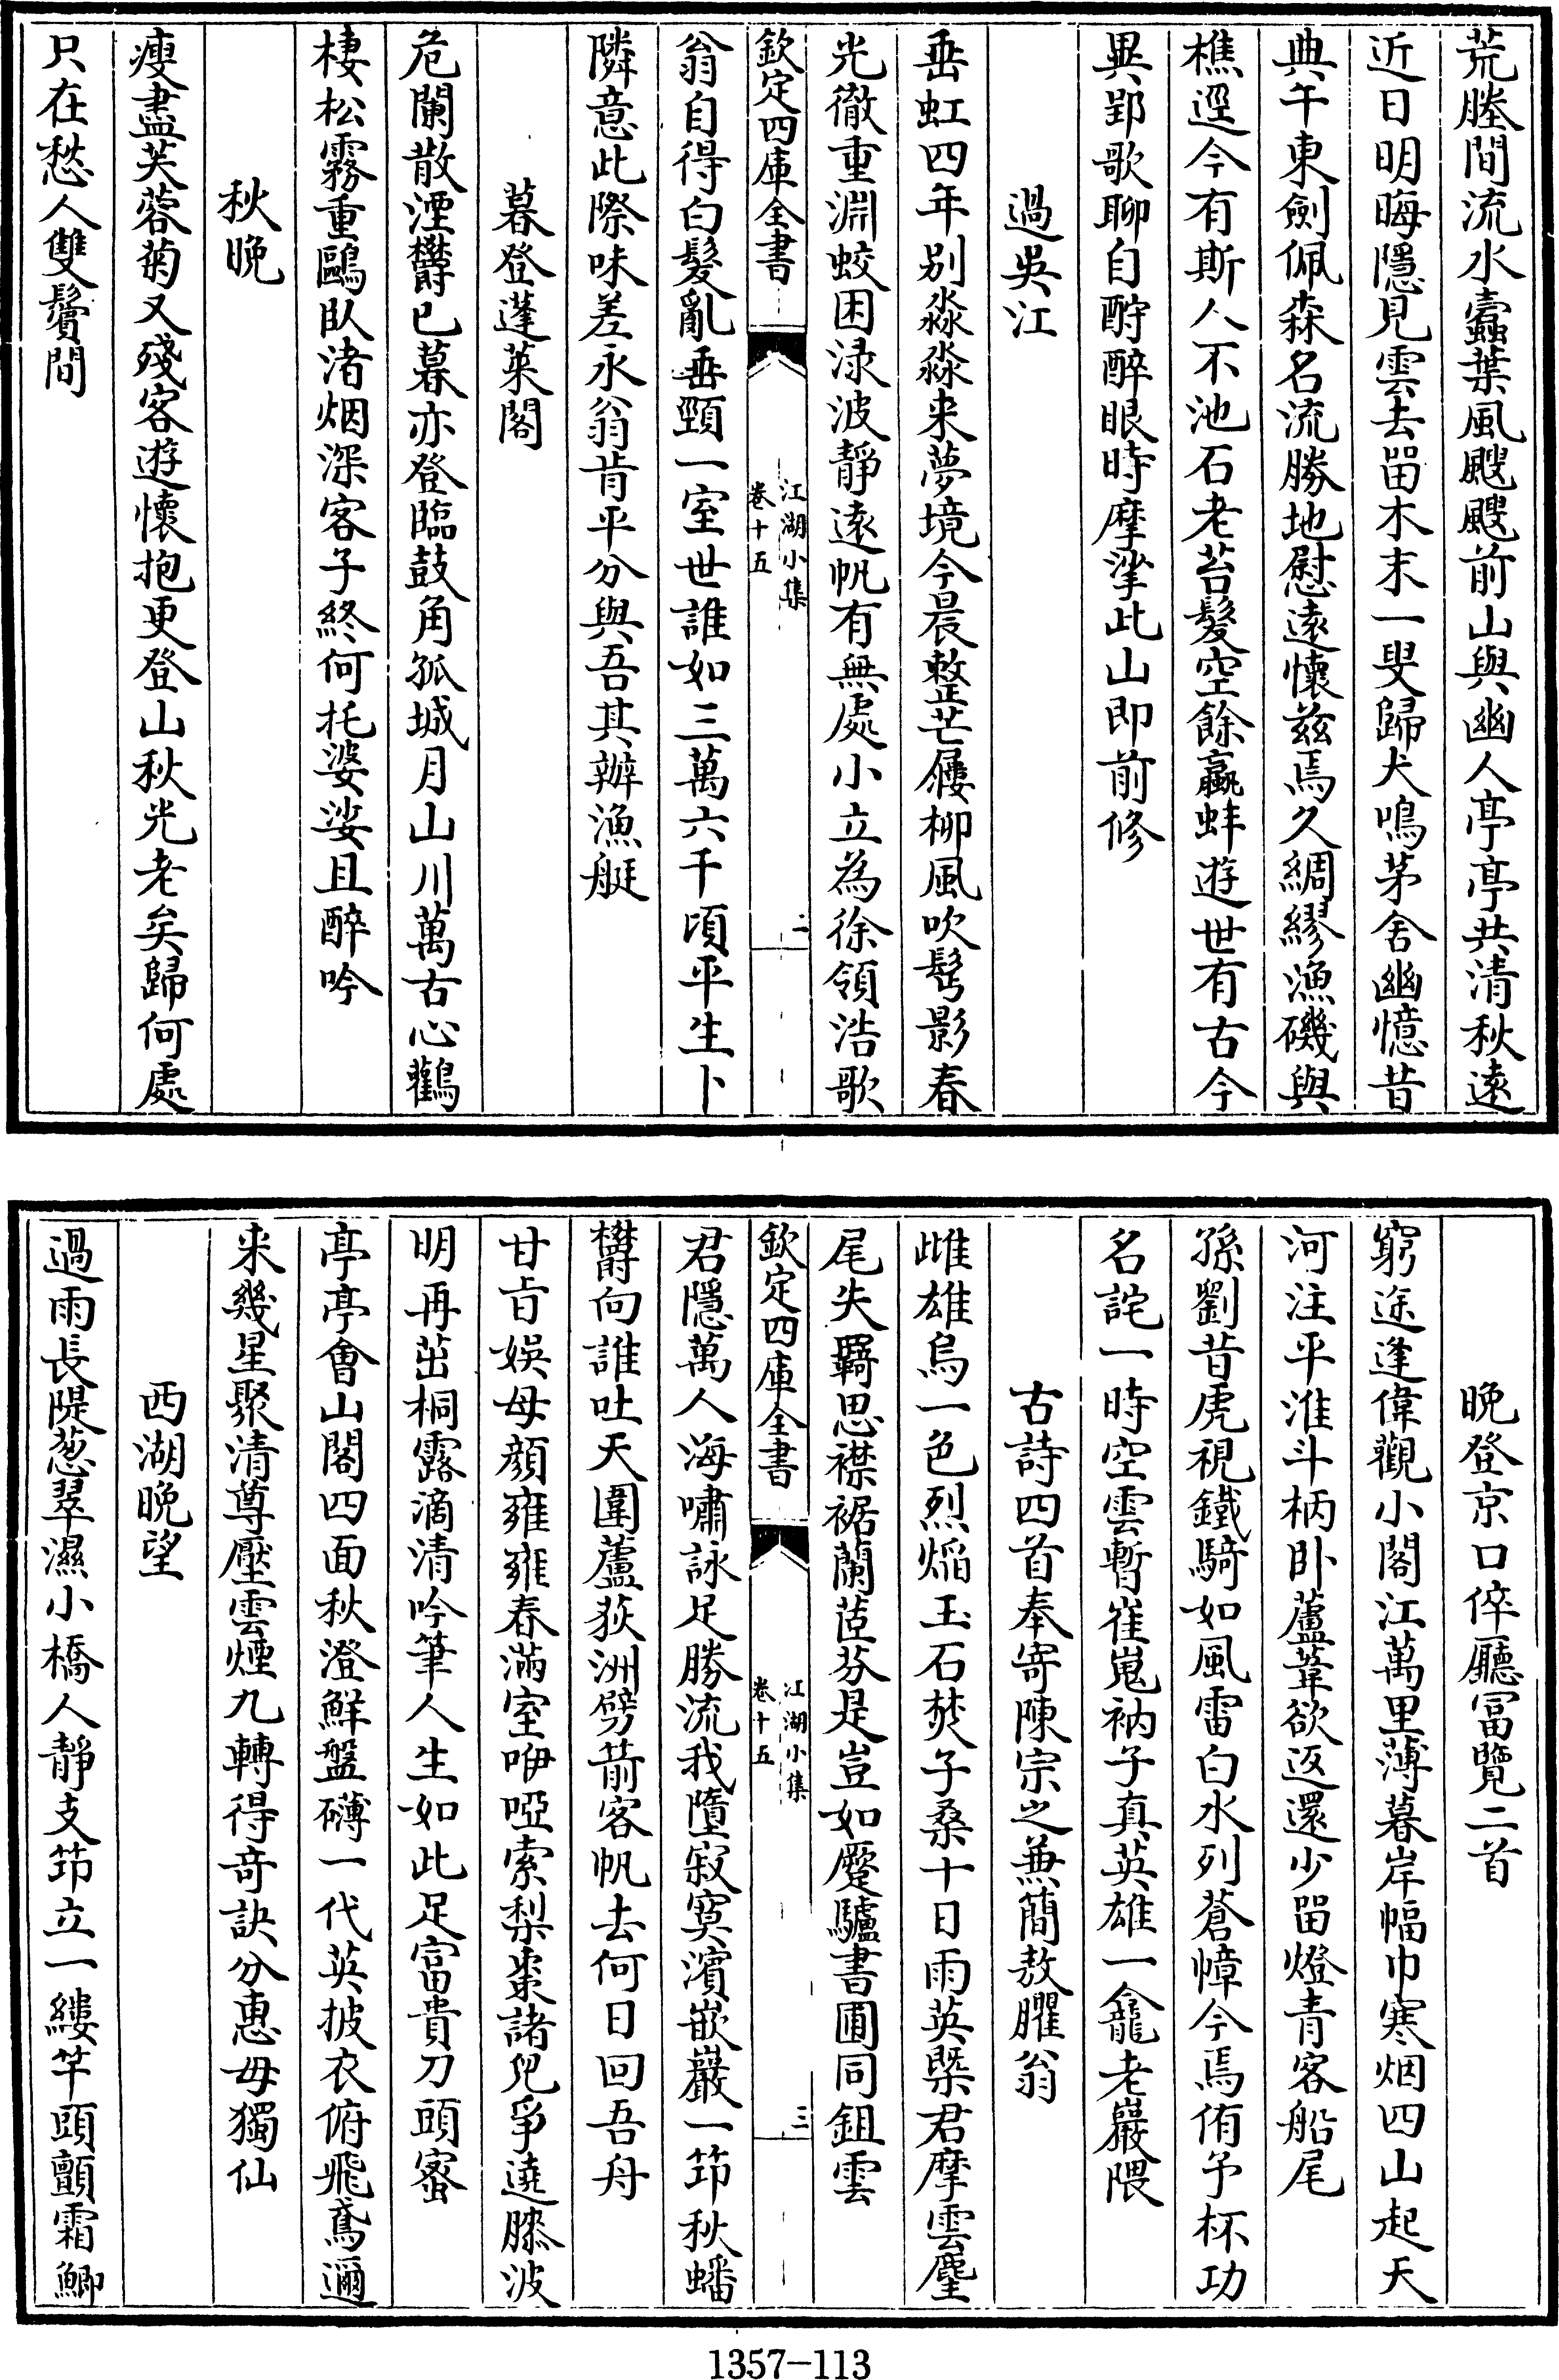 荒塍間流水蠧葉風颼颼前山與幽人亭亭共清秋逺
近日明晦隱見雲去畱木末一叟歸犬鳴茅舍幽憶昔
典午東劍佩森名流勝地慰逺懐兹焉久綢繆漁磯與
樵逕今有斯人不池石老苔髮空餘蠃蚌遊世有古今
異郢歌聊自酧醉眼時摩挲此山即前修
過吳江
垂虹四年别淼淼来夢境今晨整芒屨柳風吹髩影春
光徹重淵蛟困渌波靜逺帆有無處小立為徐領浩歌
欽定四庫全書
江湖小集
卷十五
二
翁自得白髮亂垂頸一室世誰如三萬六千頃平生卜
隣意此際味差永翁肯平分與吾其辦漁艇
暮登蓬萊閣
危闌散湮欝已暮亦登臨鼓角孤城月山川萬古心鸛
棲松霧重鷗臥渚烟深客子終何托婆娑且醉吟
秋晚
瘦盡芙蓉菊又殘客遊懐抱更登山秋光老矣歸何處
只在愁人雙鬢間
晚登京口倅廳冨覽二首
窮途逢偉觀小閣江萬里薄暮岸幅巾寒烟四山起天
河注平淮斗柄卧蘆葦欲返還少畱燈青客船尾
孫劉昔虎視鐵騎如風雷白水列蒼幛今焉侑予杯功
名詫一時空雲暫崔嵬衲子真英雄一龕老巖隈
古詩四首奉寄陳宗之兼簡敖臞翁
雌雄烏一色烈熖玉石焚子桑十日雨英槩君摩雲麈
尾失羇思襟裾蘭茝芬是豈如蹷驢書圃同鉏雲
欽定四庫全書
江湖小集
卷十五
三
君隱萬人海嘯詠足勝流我墮寂寞濱嵌巖一笻秋蟠
欝向誰吐天圍蘆荻洲劈箭客帆去何日回吾舟
甘㫖娛母顔雍雍春滿室咿啞索梨棗諸兒爭遶膝波
明再茁桐露滴清吟筆人生如此足富貴刀頭蜜
亭亭會山閣四面秋澄鮮盤礴一代英披衣俯飛鳶邇
来幾星聚清尊壓雲煙九轉得竒訣分惠毋獨仙
西湖晚望
過雨長隄葱翠濕小橋人靜支笻立一縷竿頭顫霜鯽
1357-113